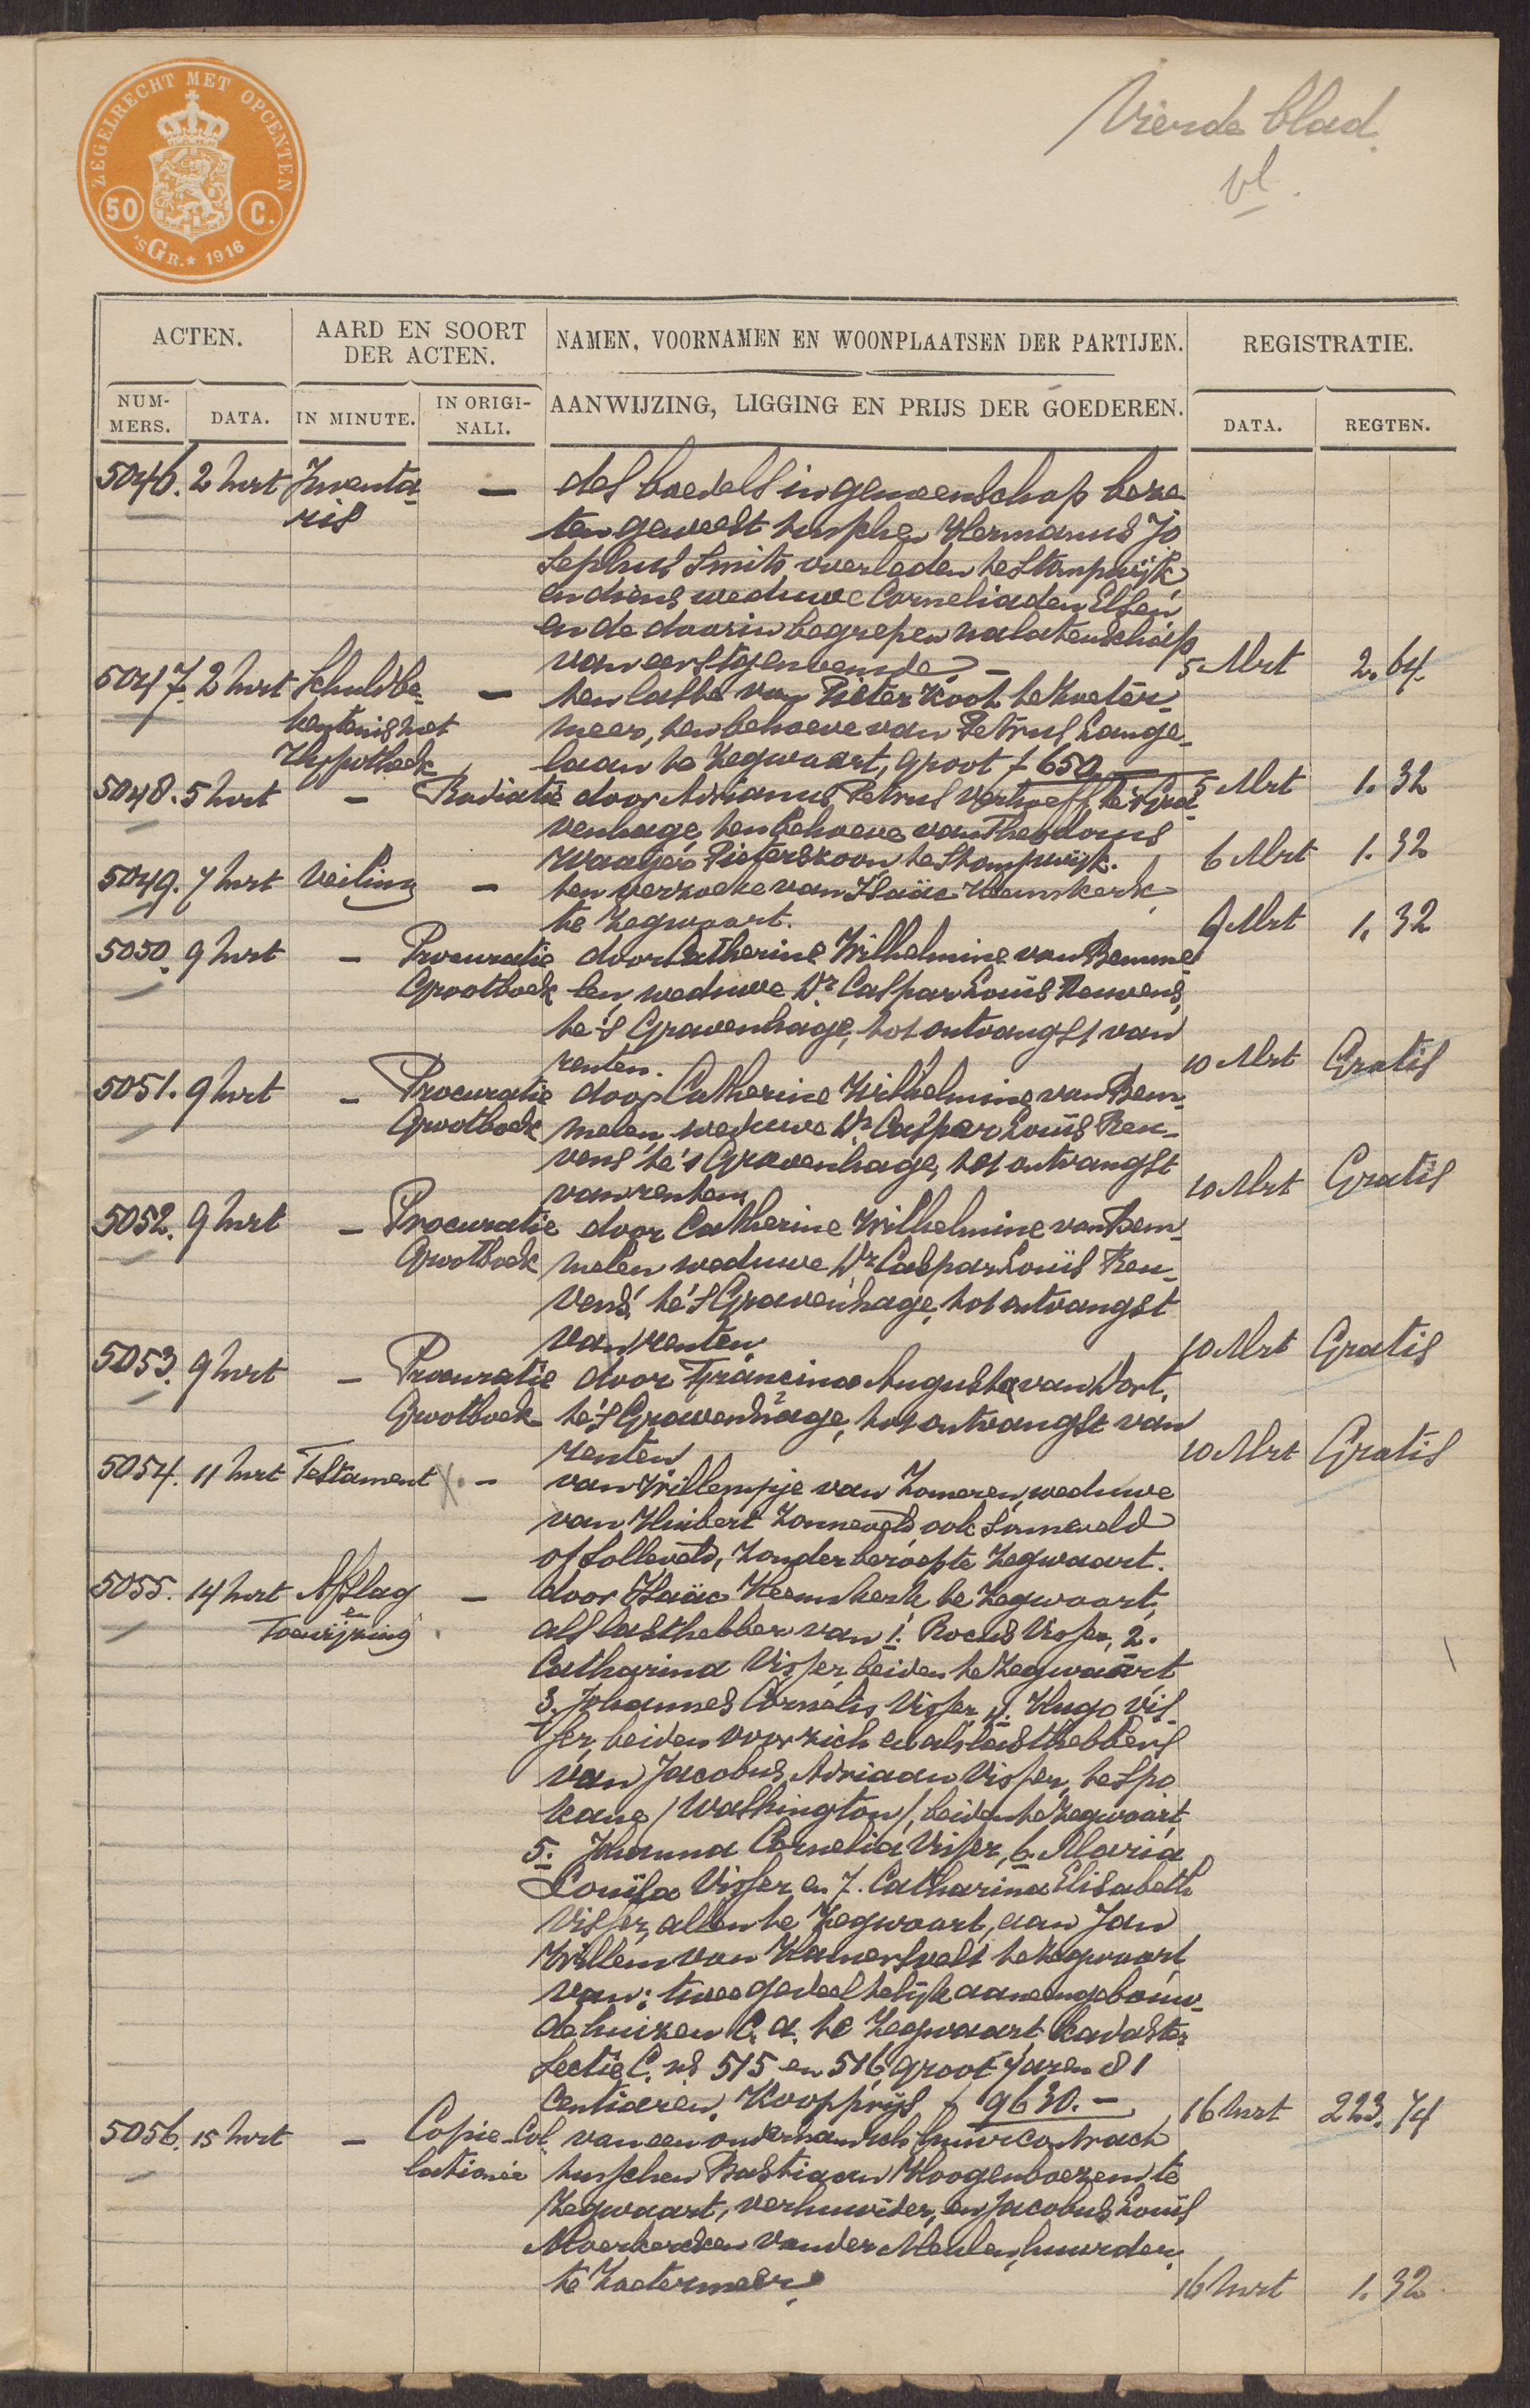 ZEGELRECHT MET OPCENTEN
50 C.
'sGR.* 1916
Vierde blad.
vl.
ACTEN.
AARD EN SOORT
DER ACTEN.
NAMEN, VOORNAMEN EN WOONPLAATSEN DER PARTIJEN.
REGISTRATIE.
NUM-
MERS.
DATA.
IN MINUTE.
IN ORIGI-
NALI.
AANWIJZING, LIGGING EN PRIJS DER GOEDEREN.
DATA.
REGTEN.
5046. 2 Mrt Inventa- — des boedels in gemeenschap beze
ris ten geweest tusschen Hermanus Jo
sephus Smits overleden te Stompwijk
en diens weduwe Cornelia den Elsen
en de daarin begrepen nalatenschap
van eerstgenoemde. — 5 Mrt 2.64.
5047. 2 Mrt Schuldbe- — ten laste van Pieter Koot te Zoeter-
kentenis met meer, ten behoeve van Petrus Lange-
Hypotheek laan te Zegwaart, groot f 650 5 Mrt 1.32
5048. 5 Mrt — Radiatie door Adrianus Petrus Verhoeff te 's Gra-
venhage, ten behoeve van Theodorus
Waaijer Pieterszoon, te Stompwijk. 6 Mrt 1.32
5049. 7 Mrt Veiling — ten verzoeke van Isaäc Heemskerk
te Zegwaart. 9 Mrt 1.32
5050. 9 Mrt — Procuratie door Catherine Wilhelmine van Bemme
Grootboek len, weduwe Dr Caspar Louis Reuvens,
te 's Gravenhage, tot ontvangst van
renten. 10 Mrt Gratis
5051. 9 Mrt — Procuratie door Catherine Wilhelmine van Bem-
Grootboek melen weduwe Dr Caspar Louis Reu-
vens te 's Gravenhage, tot ontvangst
van renten 10 Mrt Gratis
5052. 9 Mrt — Procuratie door Catherine Wilhelmine van Bem-
Grootboek melen weduwe Dr Caspar Louis Reu-
vens, te 's Gravenhage, tot ontvangst
van renten 10 Mrt Gratis
5053. 9 Mrt — Procuratie door Francina Augusta van Dort,
Grootboek te 's Gravenhage, tot ontvangst van
renten 10 Mrt Gratis
5054. 11 Mrt Testament X. — van Willempje van Zomeren, weduwe
van Huibert Zonneveld ook Sonneveld
of Solleveld, zonder beroep te Zegwaart.
5055. 14 Mrt Afslag — door Isaäc Heemskerk te Zegwaart,
en
Toewijzing als lasthebber van 1. Rocus Visser, 2.
Catharina Visser, beiden te Zegwaart
3. Johannes Cornelis Visser, 4. Hugo Vis-
ser, beiden voor zich en als lasthebbers
van Jacobus Adriaan Visser, te Spo
kane (Washington), beiden te Zegwaart
5. Johanna Cornelia Visser, 6. Maria
Louisa Visser en 7. Catharina Elisabeth
Visser, allen te Zegwaart, aan Jan
Willem van Hamersvelt te Zegwaart
van: twee gedeeltelijk aaneengebouw-
de huizen c.a. te Zegwaart Kadaster
Sectie C. ns 515 en 516 groot 7 aren 81
centiaren. Koopprijs f 9630.— 16 Mrt 223.74
5056. 15 Mrt — Copie-Col van een onderhandsch huurcontract
lationée tusschen Bastiaan Hoogenboezem te
Zegwaart, verhuurder, en Jacobus Louis
Moerkercken van der Meulen, huurder,
te Zoetermeer. 16 Mrt 1.32